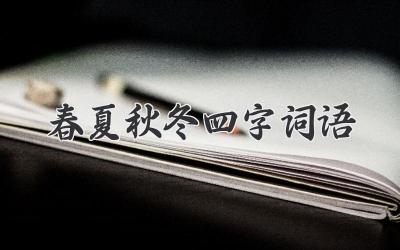 春夏秋冬四字词语